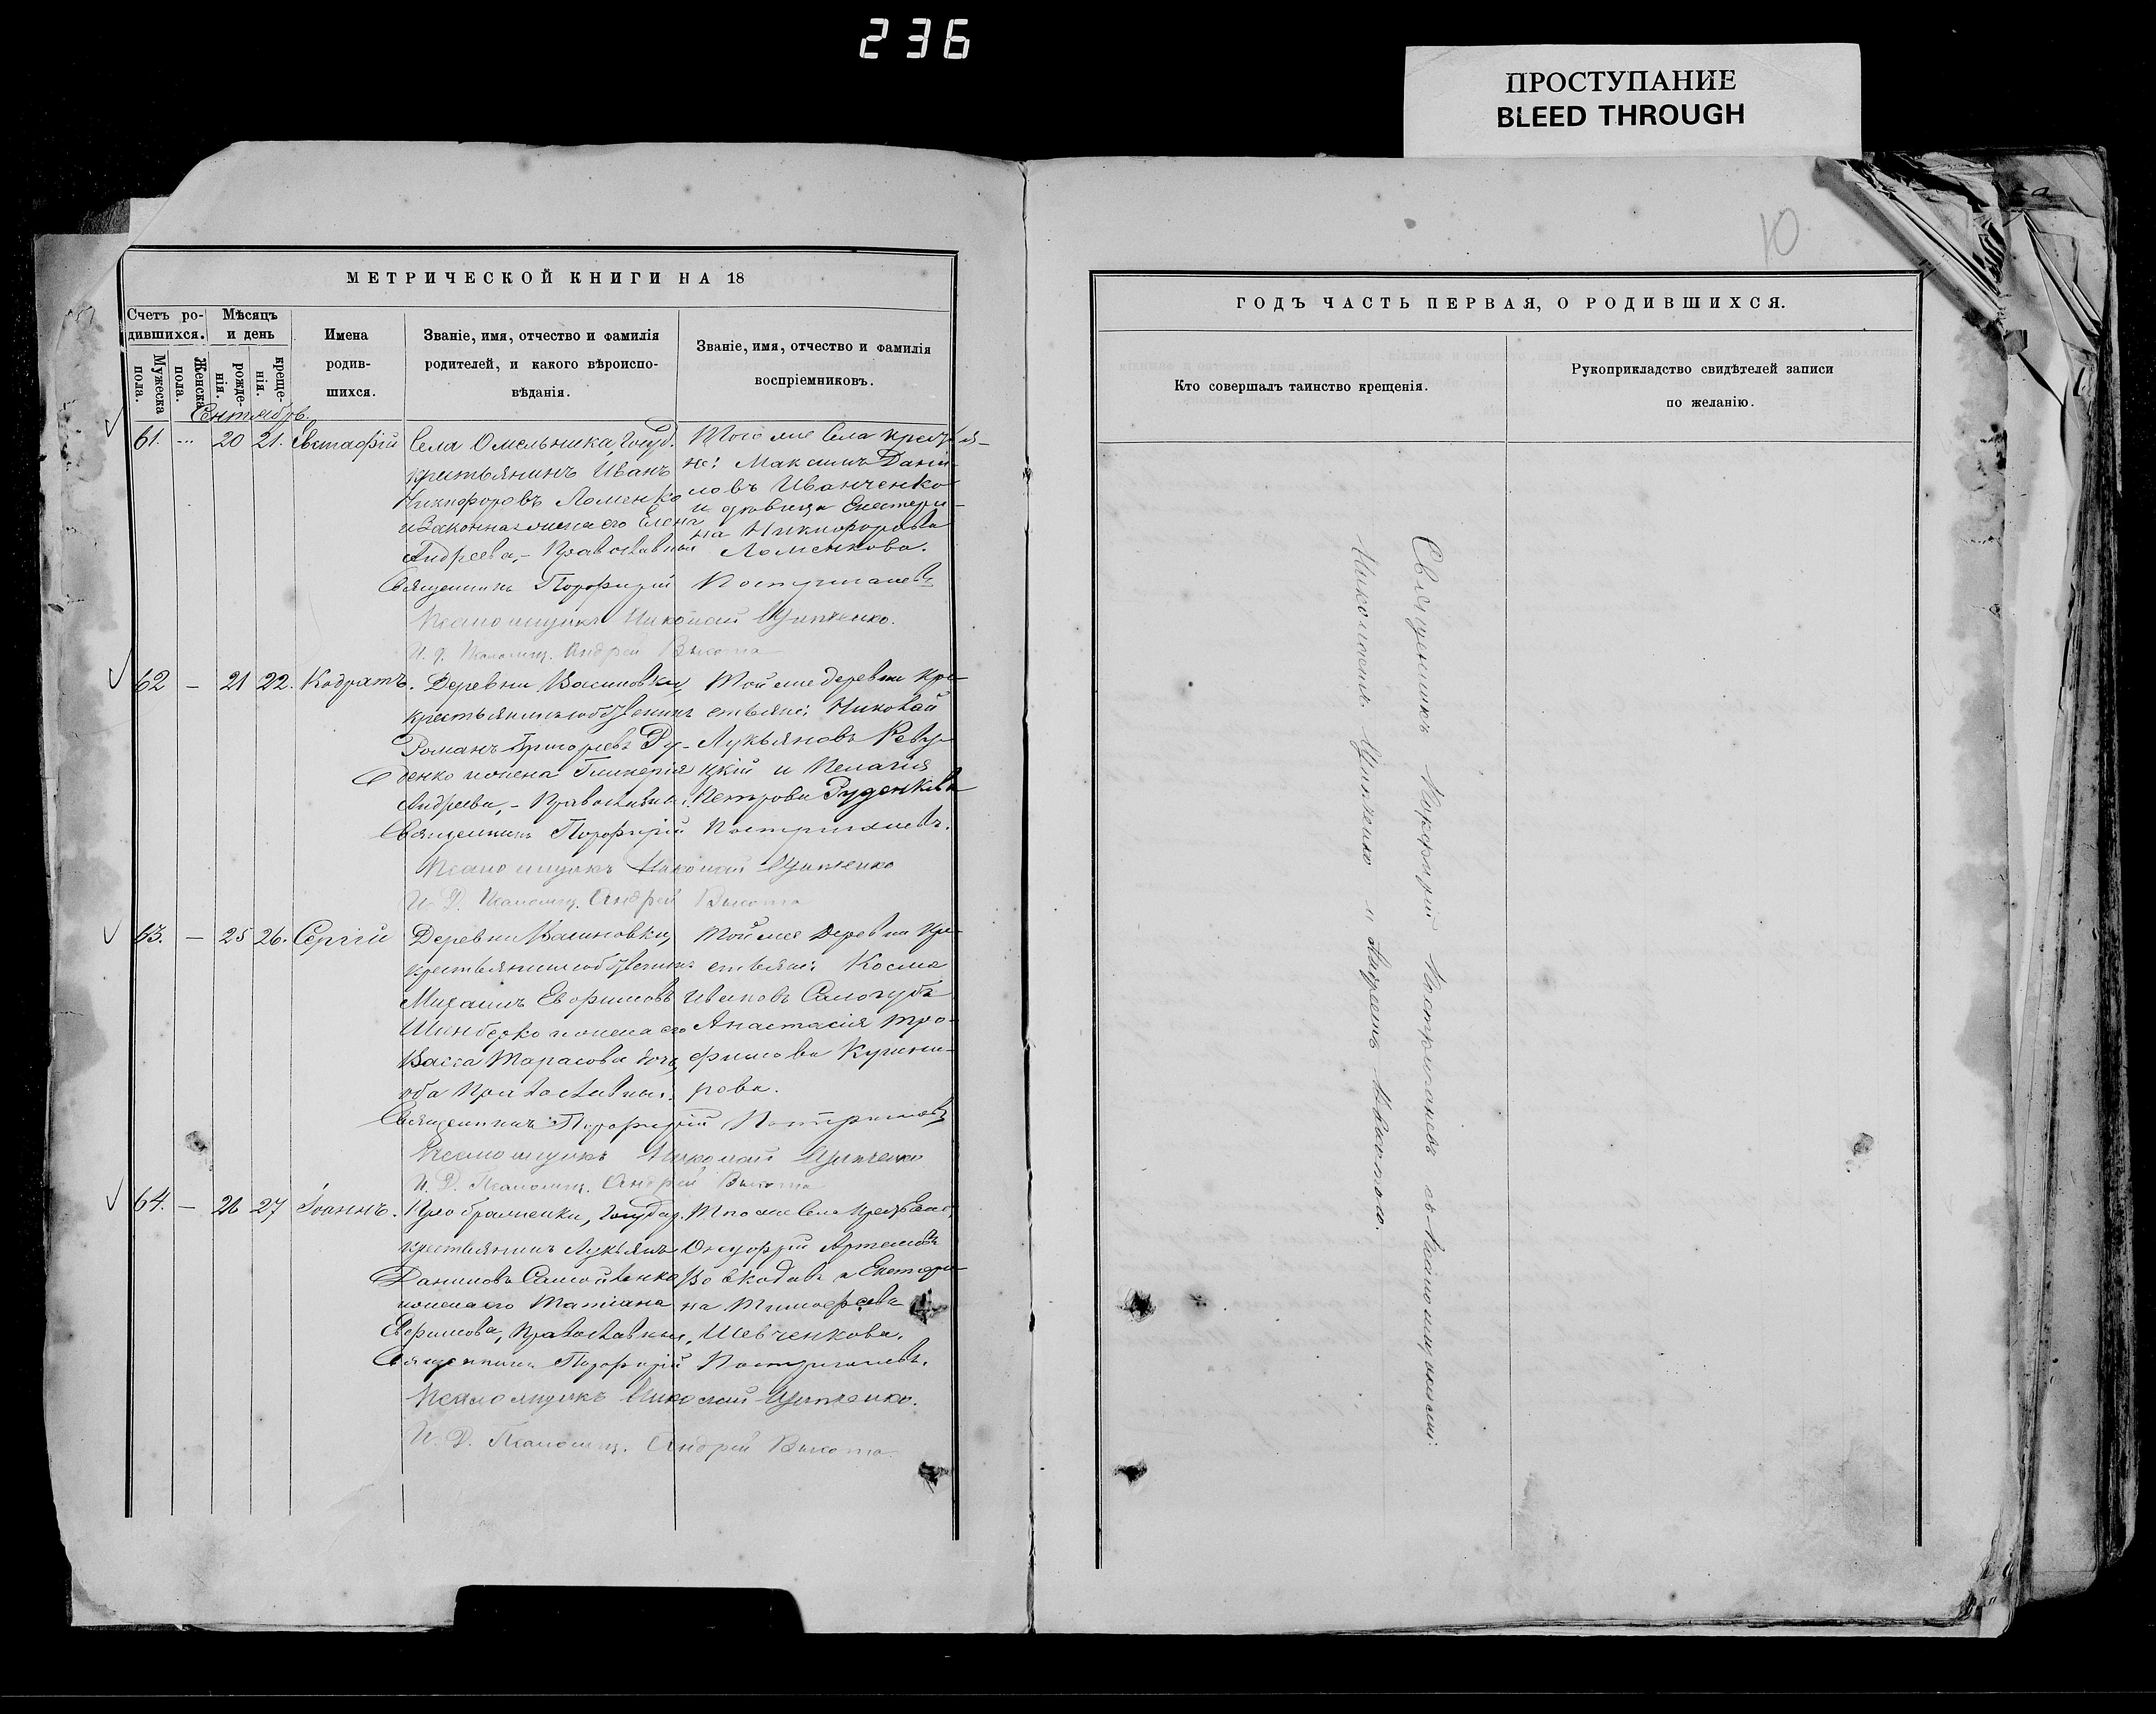 236
ПРОСТУПАНИЕ
BLEED THROUGH
10
МЕТРИЧЕСКОЙ КНИГИ НА 18
Счетъ ро-
дившихся.
Мужеска
пола.
Женска
пола.
Мѣсяцъ
и день
рожде-
нія.
креще-
нія.
Имена
родив-
шихся.
Званіе, имя, отчество и фамилія
родителей, и какого вѣроиспо-
вѣданія.
Званіе, имя, отчество и фамилія
воспріемниковъ.
Сентябрь.
61. ... 20 21. Евстафій
Села Омельника, Госуд.
крестьянинъ Иванъ
Никифоровъ Ломенко
и законная жена его Елена
Андреева, - Православныи
Того же Села крестья-
не: Максимъ Дани-
ловъ Иванченко
и вдовица Екатери-
на Никифорова
Ломенкова.
Священникъ Порфирій Постригачевъ
Псаломщикъ Николай Ципченко.
И. д. Псаломщ. Андрей Высота
62 - 21 22. Кодратъ.
Деревни Василовки,
крестьянинъ собственникъ
Романъ Григорьевъ Ру-
денко и жена Гликерія
Андреева, - Православные.
Той же деревни кре-
стьяне: Николай
Лукьяновъ Реву-
цкій и Пелагія
Петрова Руденкова
Священникъ Порфирій Постригачевъ.
Псаломщикъ Николай Ципченко
И. Д. Псаломщ. Андрей Высота
63. - 25 26. Сергій
Деревни Василовки,
крестьянинъ собственникъ
Михаилъ Евфимовъ
и жена его
Васса Тарасова дочь,
оба Православные.
Той же Деревни кре-
стьяне: Косма
Ивановъ Самогубъ
Анастасія Тро-
фимова
рова.
Священникъ Порфирій Постригачевъ
Псаломщикъ Николай Ципченко
И. Д. Псаломщ. Андрей Высота
64. - 26 27 Іоаннъ.
Государ.
крестьянинъ Лукьянъ
Даниловъ Самойленко
жена его Татіана
Евфимова, Православные,
Того же Села крестьяне,
Онуфрій Артемовъ
и Екатери-
на Тимофеева
Шевченкова.
Священникъ Порфирій Постригачевъ.
Псаломщикъ Николай Ципченко.
И. Д. Псаломщ. Андрей Высота
ГОДЪ ЧАСТЬ ПЕРВАЯ, О РОДИВШИХСЯ.
Кто совершалъ таинство крещенія.
Рукоприкладство свидѣтелей записи
по желанію.
Священникъ Порфирій Постригачевъ съ Псаломщиками:
Николаемъ Ципченко и Андреемъ Высотою.